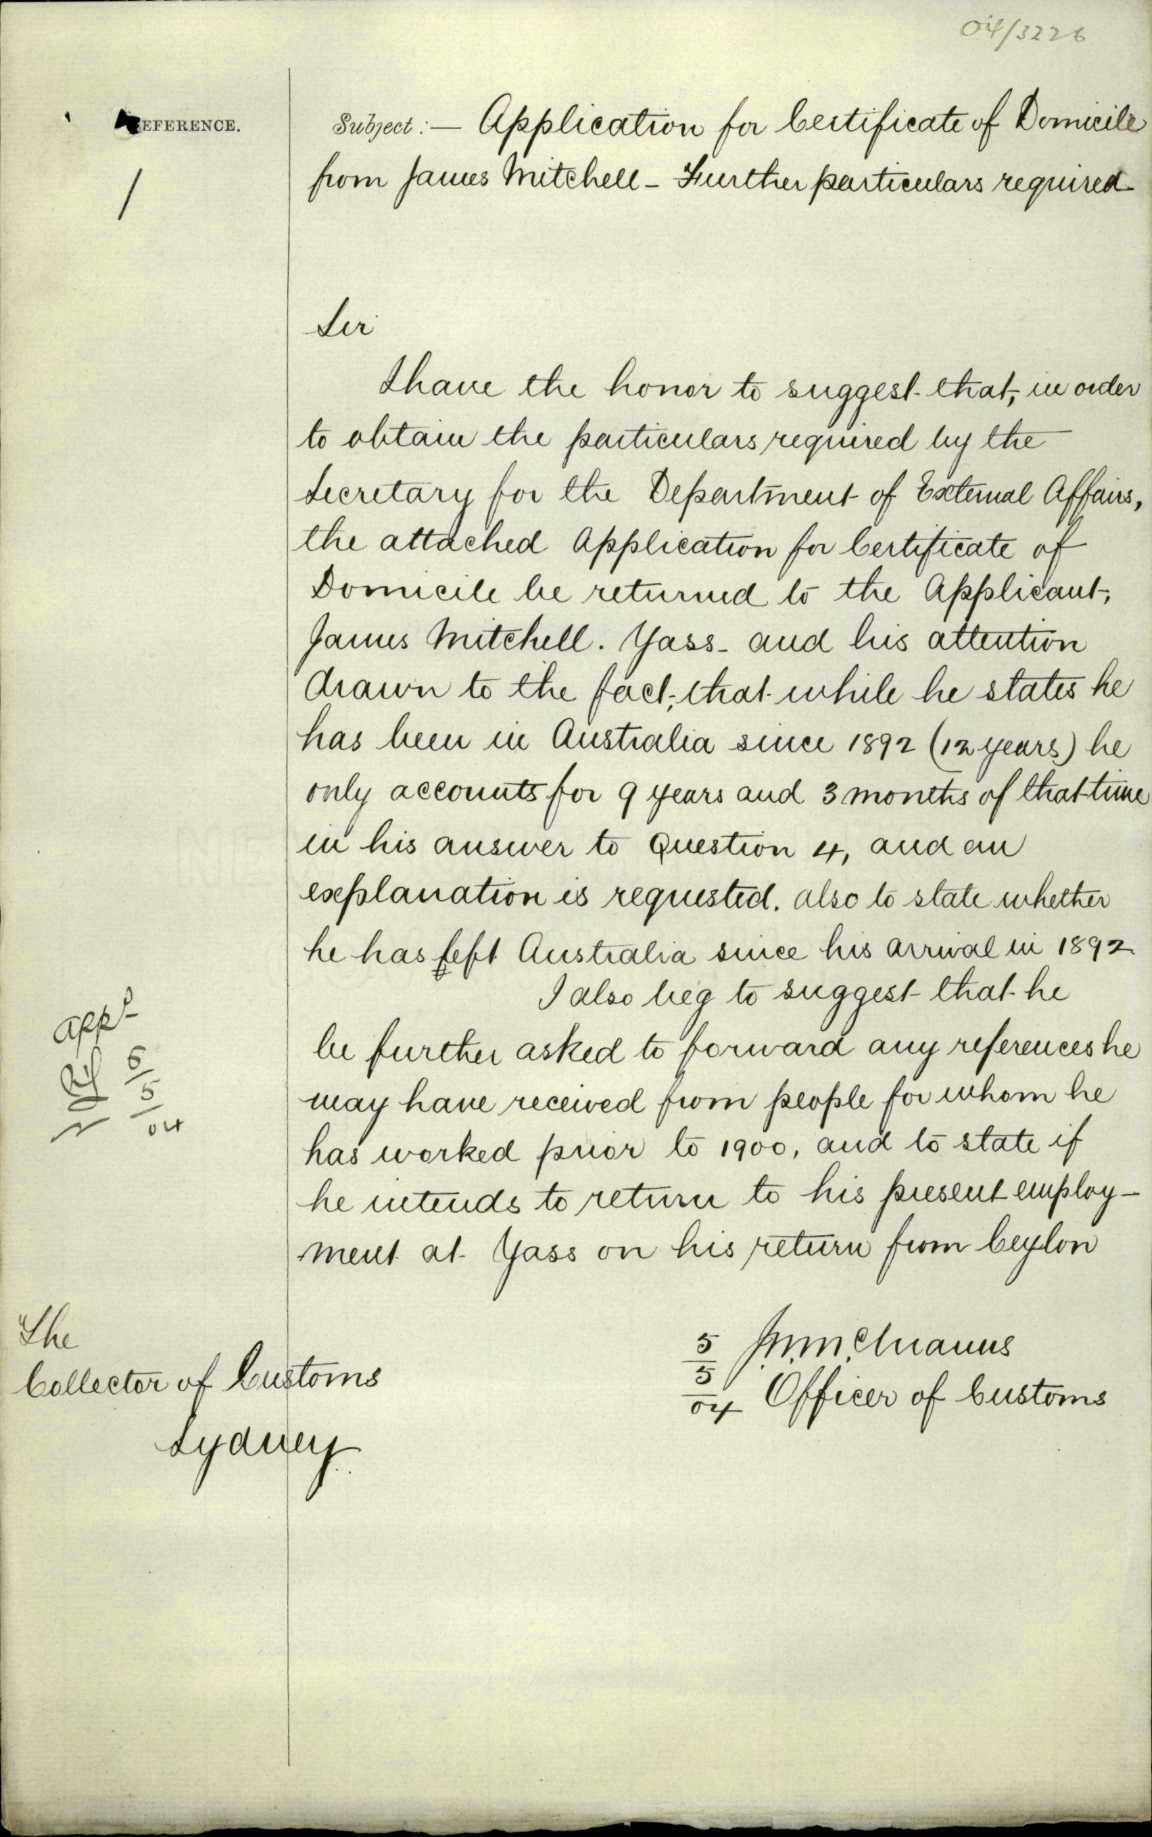 04/3226
REFERENCE.
Subject:— Application for Certificate of Domicile
from James Mitchell - Further particulars required
Sir
I have the honor to suggest that, in order
to obtain the particulars required by the
Secretary for the Department of External Affairs,
the attached Application for Certificate of
Domicile be returned to the Applicant,
James Mitchell. Yass - and his attention
drawn to the fact, that while he states he
has been in Australia since 1892 (12 years) he
only accounts for 9 years and 3 months of that time
in his answer to Question 4, and an
explanation is requested. also to state whether
he has left Australia since his arrival in 1892
I also beg to suggest that he
be further asked to forward any references he
may have received from people for whom he
has worked prior to 1900, and to state if
he intends to return to his present employ-
ment at Yass on his return from Ceylon
Appd
6/5/04
The
Collector of Customs
Sydney
5/5/04
Officer of Customs